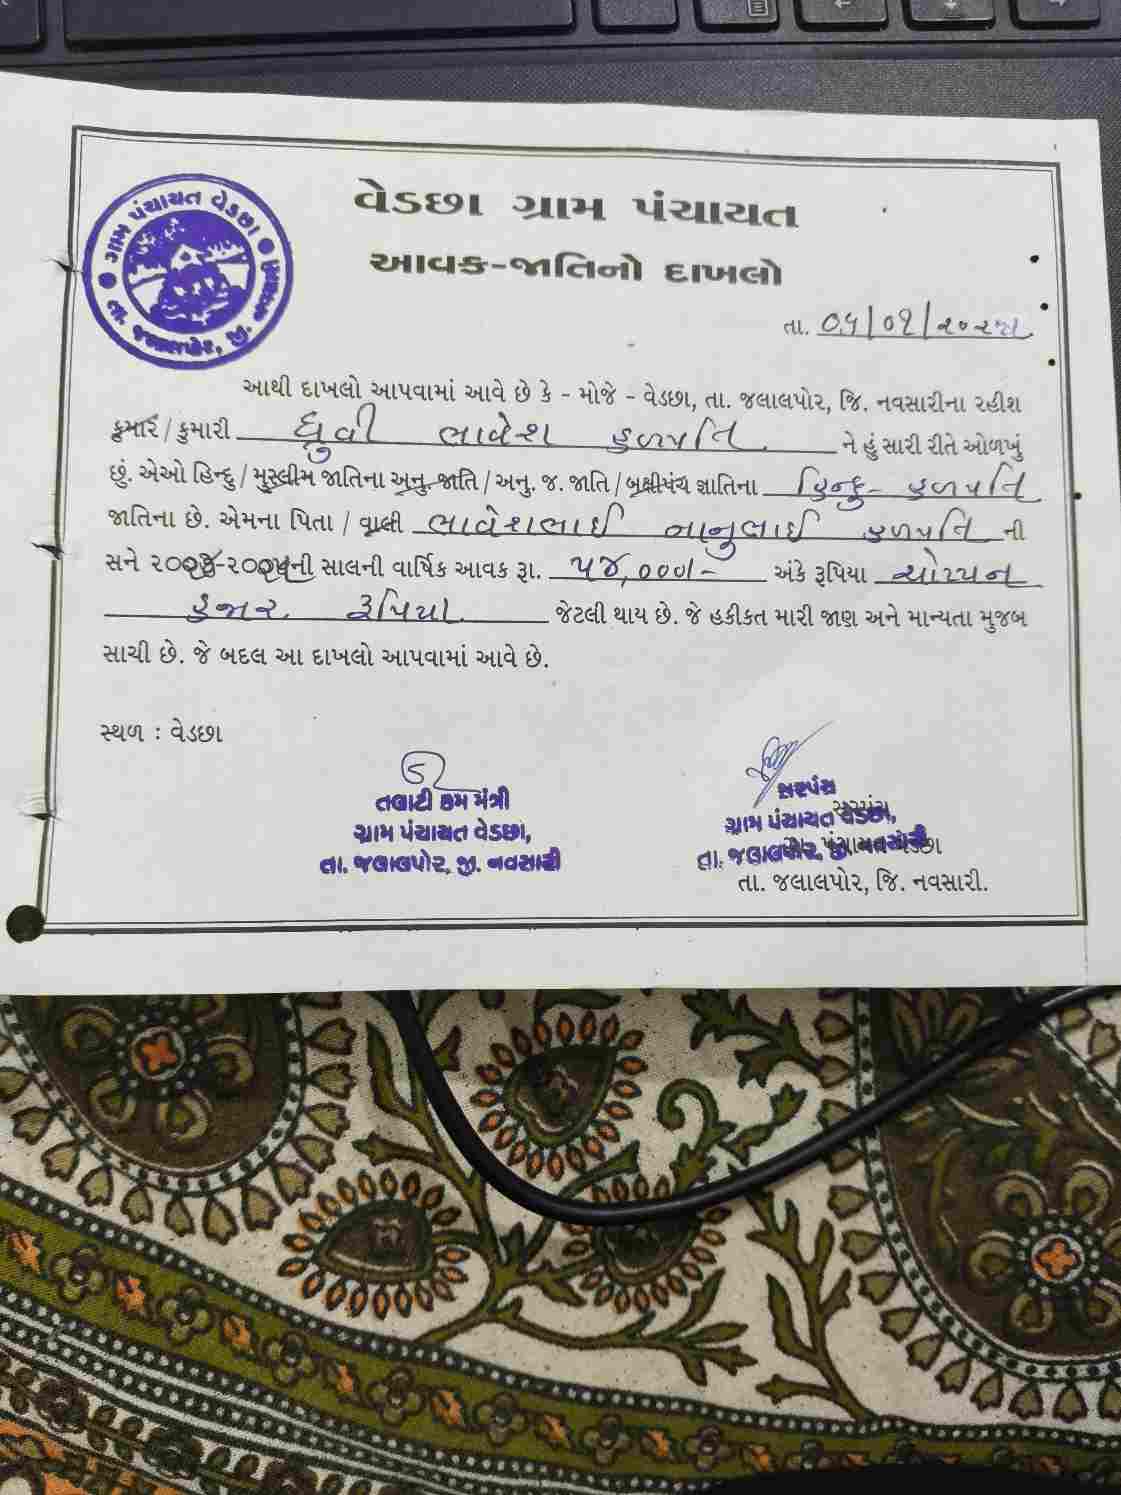 ગ્રામ પંચાયત વેડછા
તા. જલાલપોર, જી. નવસારી
વેડછા ગ્રામ પંચાયત
આવક-જાતિનો દાખલો
તા. ૦૫/૦૧/૨૦૨૫
આથી દાખલો આપવામાં આવે છે કે - મોજે - વેડછા, તા. જલાલપોર, જિ. નવસારીના રહીશ
કુમાર / કુમારી ધ્રુવી ભાવેશ હળપતિ ને હું સારી રીતે ઓળખું
છું. એઓ હિન્દુ / મુસ્લીમ જાતિના અનુ. જાતિ / અનુ. જ. જાતિ / બક્ષીપંચ જ્ઞાતિના હિન્દુ - હળપતિ
જાતિના છે. એમના પિતા / વાલી ભાવેશભાઈ નાનુભાઈ હળપતિ ની
સને ૨૦૨૪-૨૦૨૫ની સાલની વાર્ષિક આવક રૂા. ૫૪,૦૦૦/- અંકે રૂપિયા ચોપ્પન
હજાર રૂપિયા જેટલી થાય છે. જે હકીકત મારી જાણ અને માન્યતા મુજબ
સાચી છે. જે બદલ આ દાખલો આપવામાં આવે છે.
સ્થળ : વેડછા
તલાટી કમ મંત્રી
ગ્રામ પંચાયત વેડછા,
તા. જલાલપોર, જી. નવસારી
સરપંચ
ગ્રામ પંચાયત વેડછા,
તા. જલાલપોર, જી. નવસારી
સરપંચ
ગ્રામ પંચાયત વેડછા
તા. જલાલપોર, જિ. નવસારી.